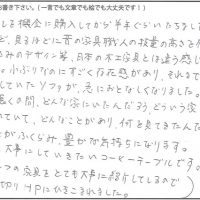 書き下さい。(一言でも文章でも絵でも大丈夫です!)
しる機会に購入してから半年ぐらいたちまし
ど、見るほどに昔の家具職人の技量の高さを
みのデザイン等、日本の木工家具とは違う感じ
。小ぶりなのにすごく存在感があり、それまで
していたソファが、急におとなしくなりました。
置くの間、どんな家にいたんだろう、どういう家
れていて、どんなことがあり、何を見てきたんだ
とがふくらみ、豊かな気持ちになります。
大事にしていきたいコーヒーテーブルです。
つの家具をとても大事に紹介してしるので
切り HPにひきこまれました。